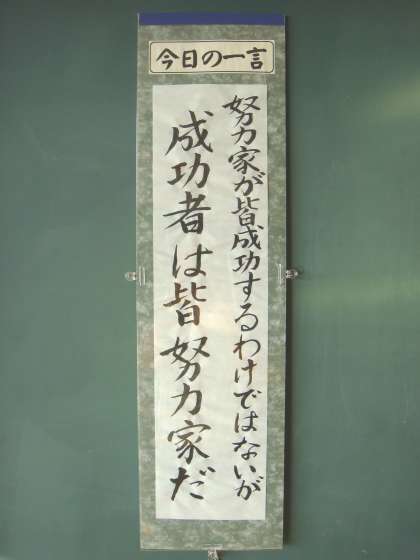 今日の一言
努力家が皆成功するわけではないが
成功者は皆努力家だ